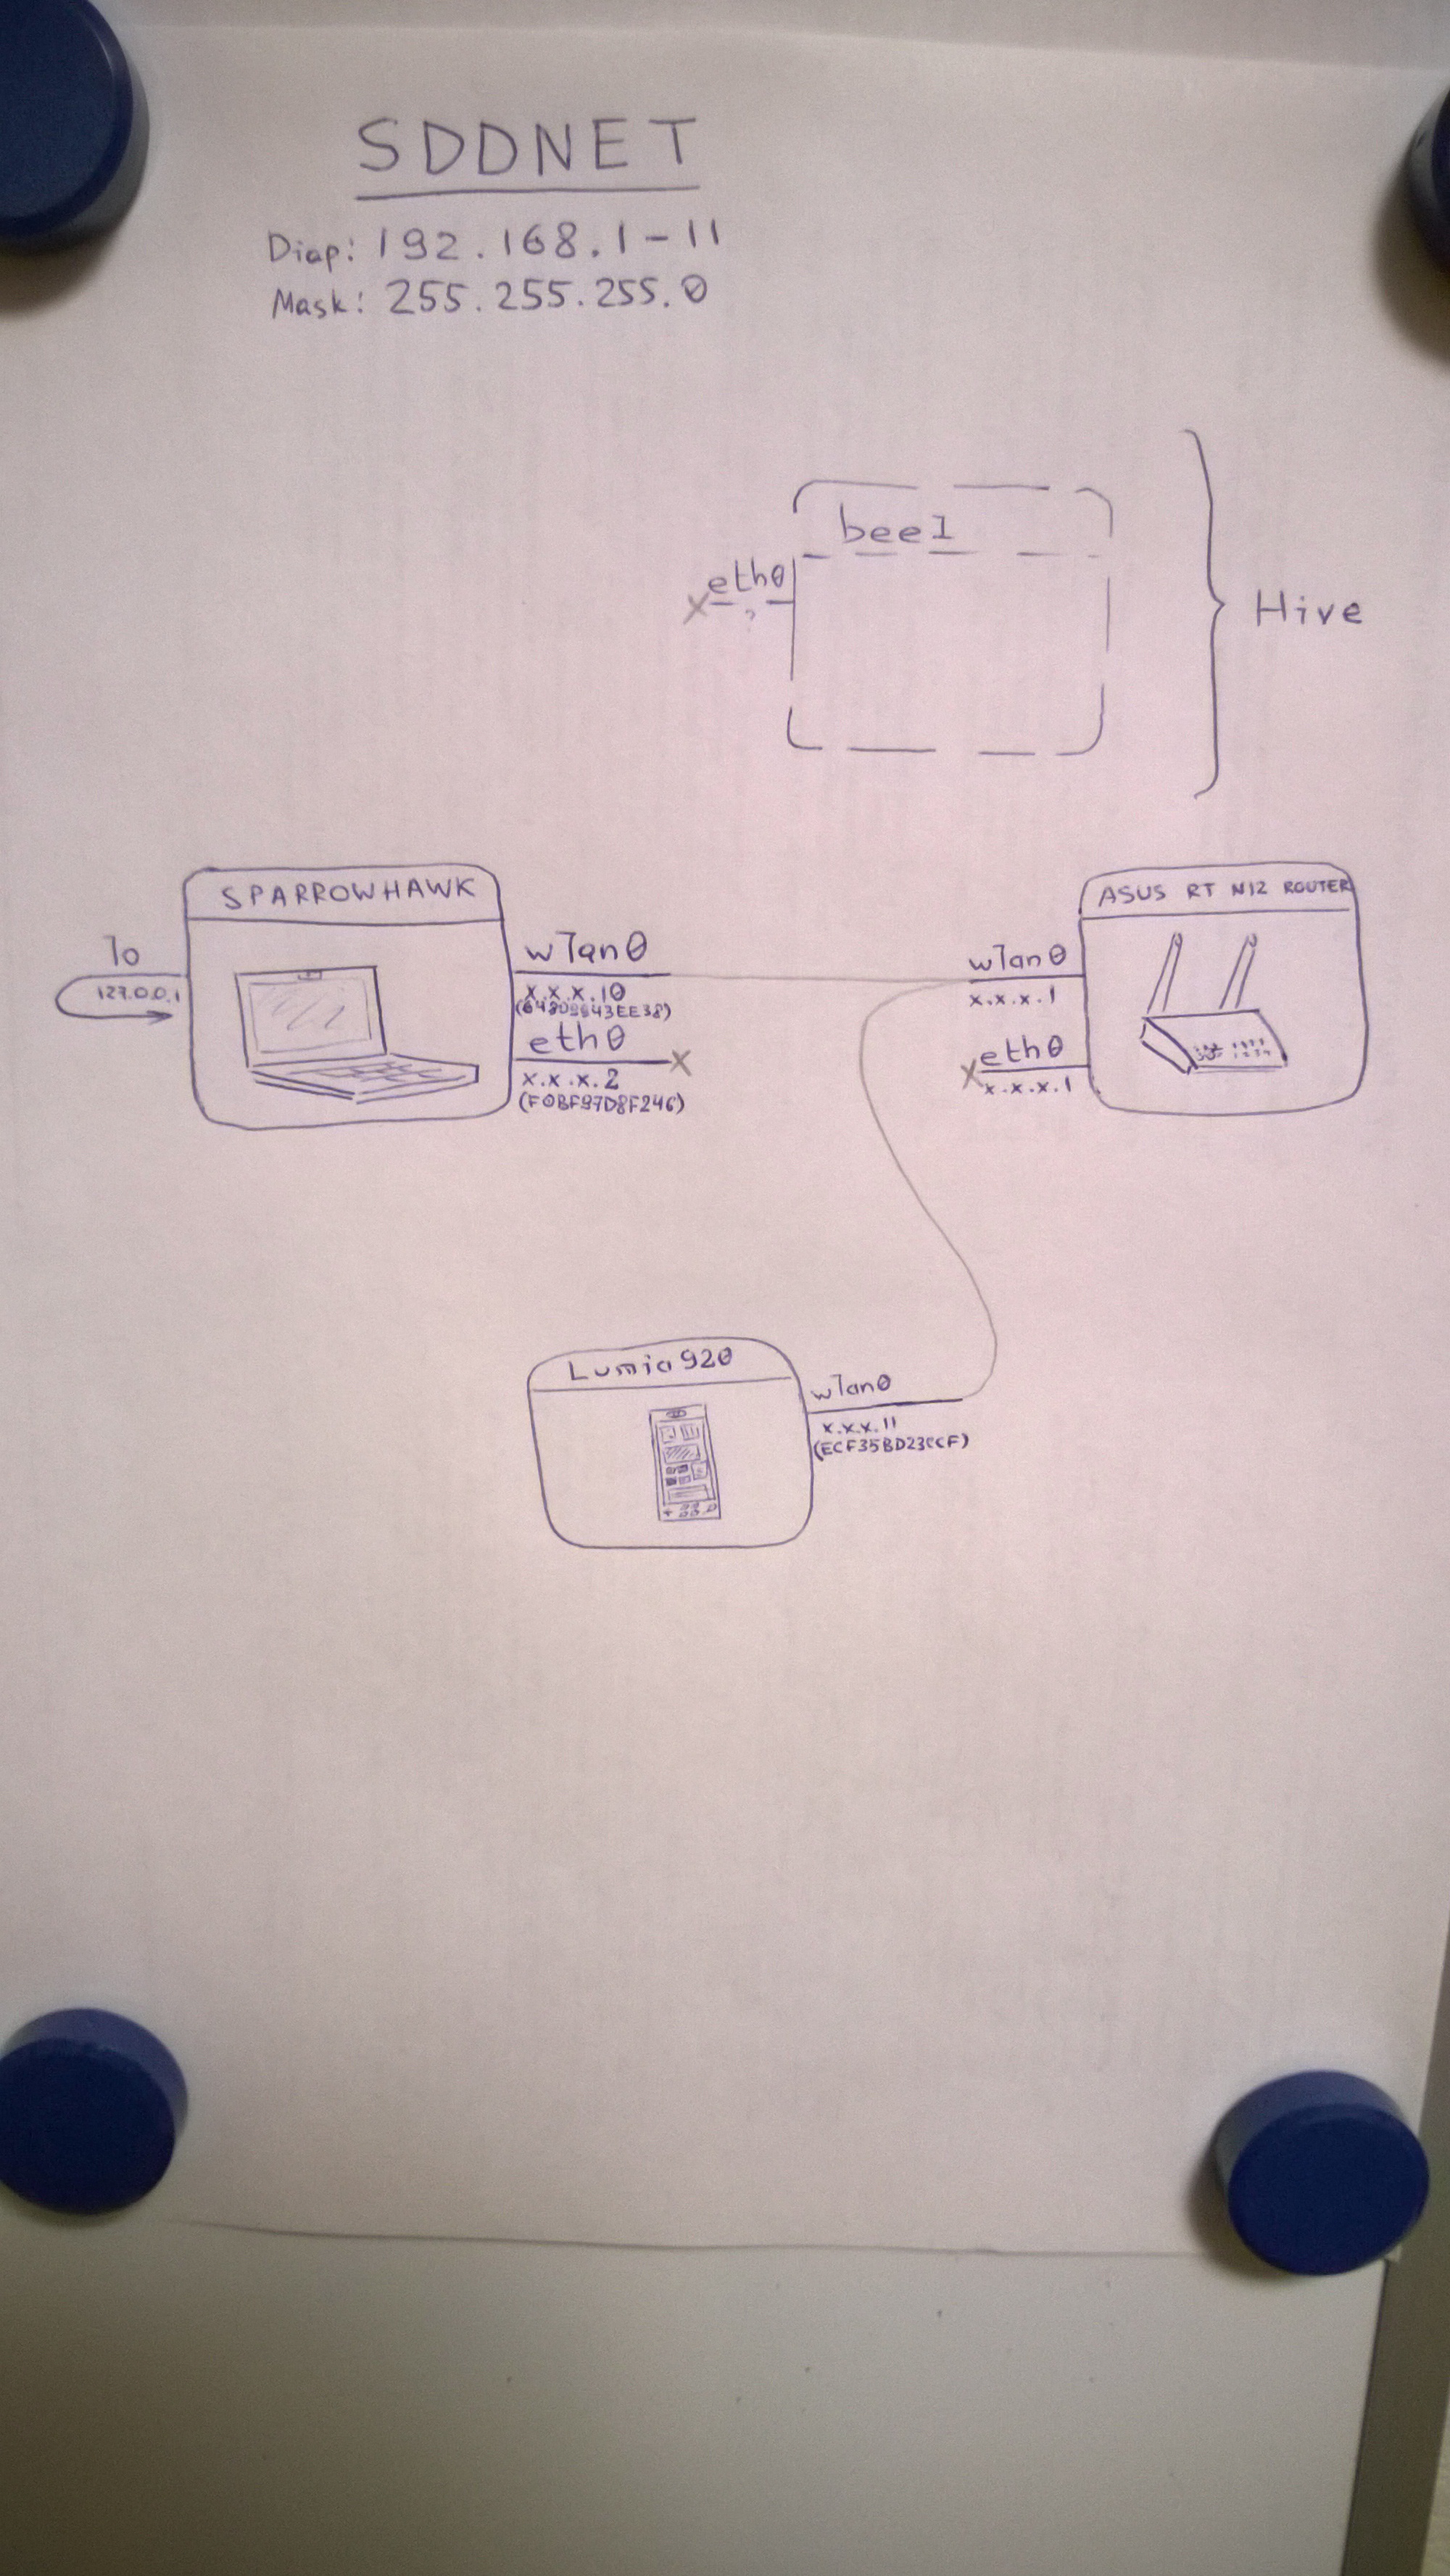 SDDNET
Diap: 192.168.1-11
Mask: 255.255.255.0
bee1
eth0
?
Hive
SPARROWHAWK
lo
127.0.0.1
wlan0
x.x.x.10
eth0
x.x.x.2
(F0BF97D8F246)
ASUS RT N12 ROUTER
wlan0
x.x.x.1
eth0
x.x.x.1
Lumia 920
wlan0
x.x.x.11
(ECF35BD23CCF)